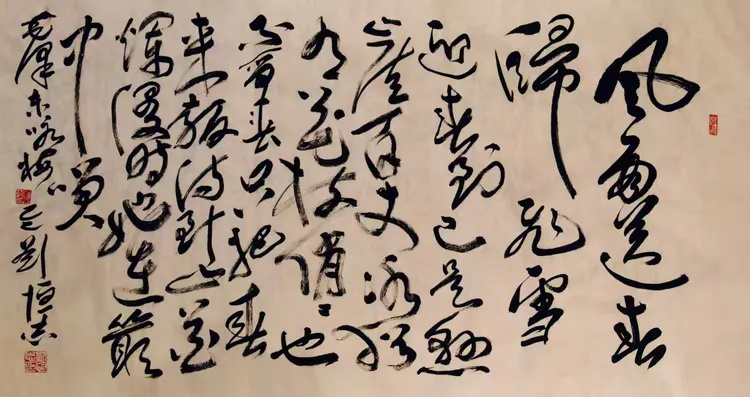 风雨送春
歸飛雪
迎春到已是懸
崖百丈冰猶
有花枝俏々也
不争春只把春
来報待到山花
爛漫時她在叢
中笑
毛澤东咏梅
劉恒